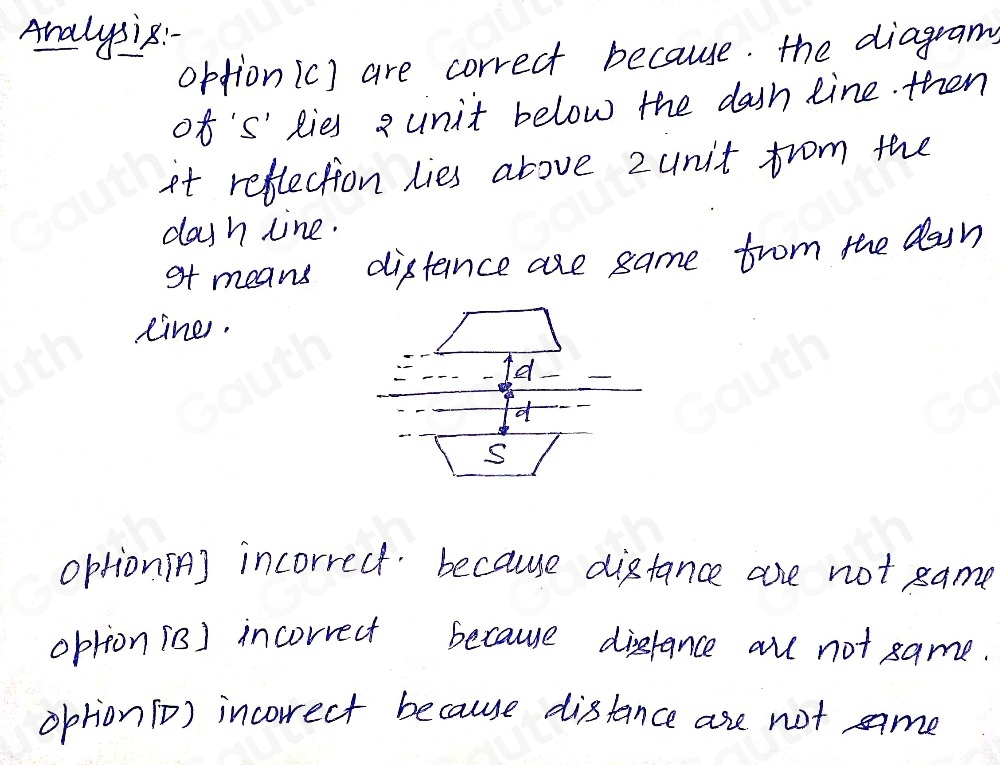 Analysis:-
option [C] are correct because. the diagrams
of 's' lies 2 unit below the dash line. then
it reflection lies above 2 unit from the
dash line.
It means distance are same from the dash
lines.
d
d
S
option [A] incorrect. because distance are not same
option [B] incorrect because distance are not same.
option [D) incorrect because distance are not same
Gauth